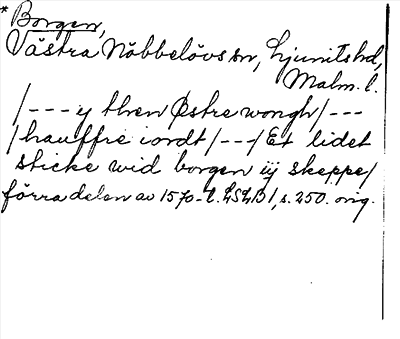 * Borgen,
Västra Nöbbelövs sn, Ljunits hd,
Malm. l.
/--- y then Østre wongh/---
/hauffre iordt/---/ Et lidet
sticke wid borgen iij skeppe/
förra delen av 1570-t. LSLB1, s. 250. orig.